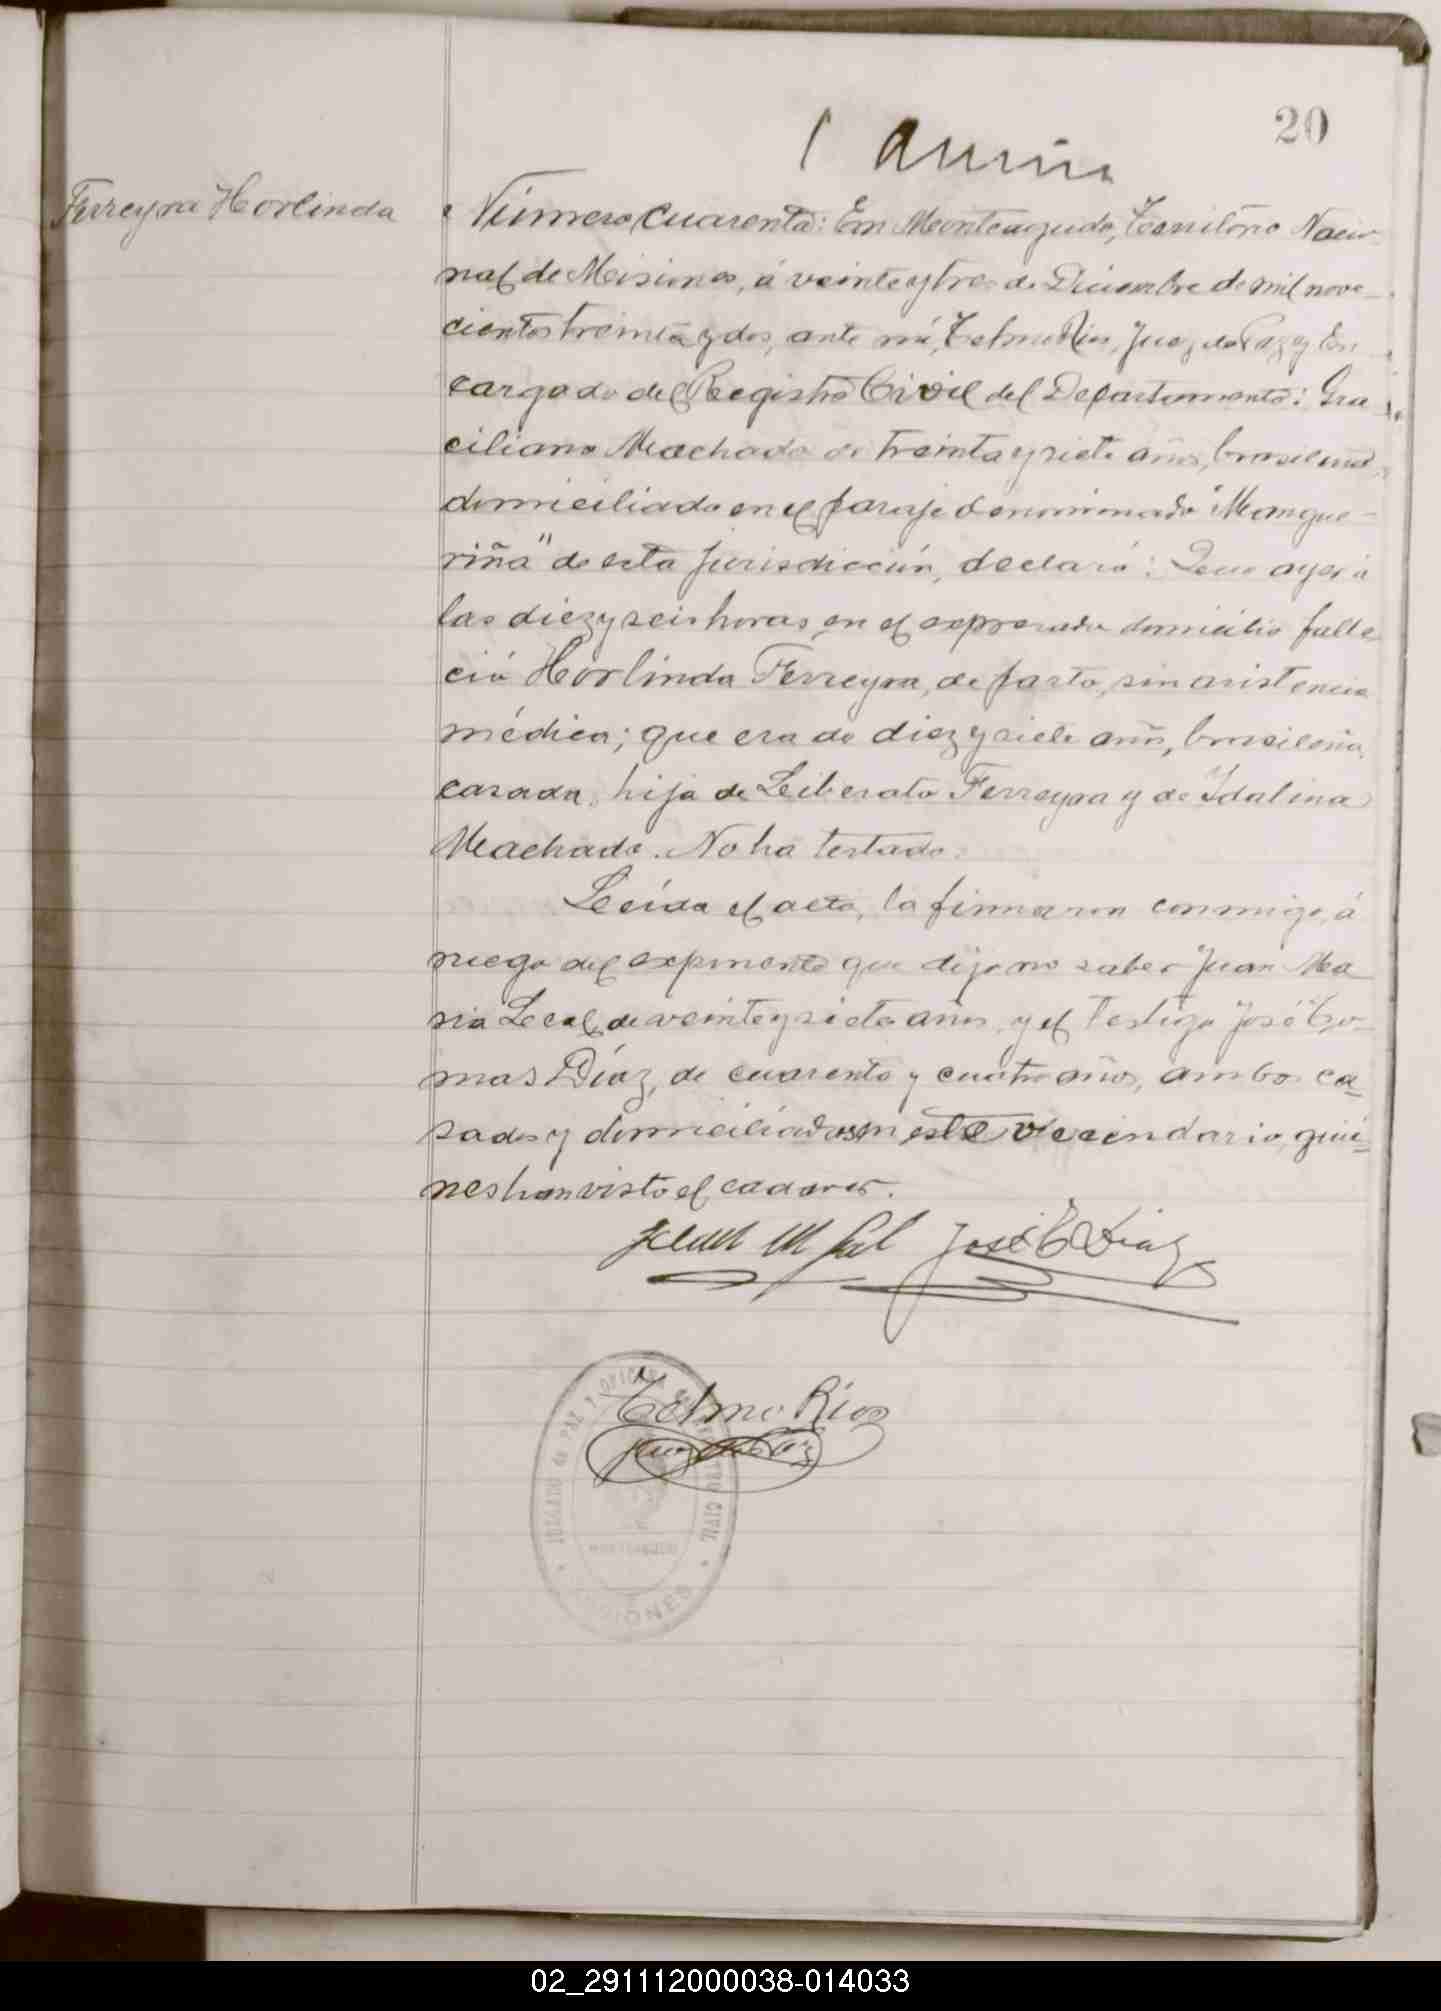 20
Ferreyra Horlinda
Número cuarenta: En Monteagudo, Territorio Nacio-
nal de Misiones, á veinte y tres de Diciembre de mil nove-
cientos treinta y dos, ante mí, Telmo Rios, Juez de Paz y En-
cargado del Registro Civil del Departamento: Gra-
ciliano Machado de treinta y siete años, brasileño,
domiciliado en el paraje denominado "Mangue-
riña" de esta jurisdicción, declaró: Que ayer á
las diez y seis horas, en el expresado domicilio falle-
ció Horlinda Ferreyra, de parto, sin asistencia
médica; que era de diez y siete años, brasileña,
casada, hija de Liberato Ferreyra y de Idalina
Machado. No ha testado.
Leída el acta, la firmaron conmigo, á
ruego del exponente que dijo no saber Juan Ma-
ria Leal, de veinte y siete años, y el testigo José
mas Díaz, de cuarenta y cuatro años, ambos ca-
sados y domiciliados en este vecindario, quie-
nes han visto el cadaver.
José Diaz
Telmo Rios
Juez de Paz
JUZGADO DE PAZ Y OFICINA REGISTRO CIVIL
MONTEAGUDO
MISIONES
02_291112000038-014033